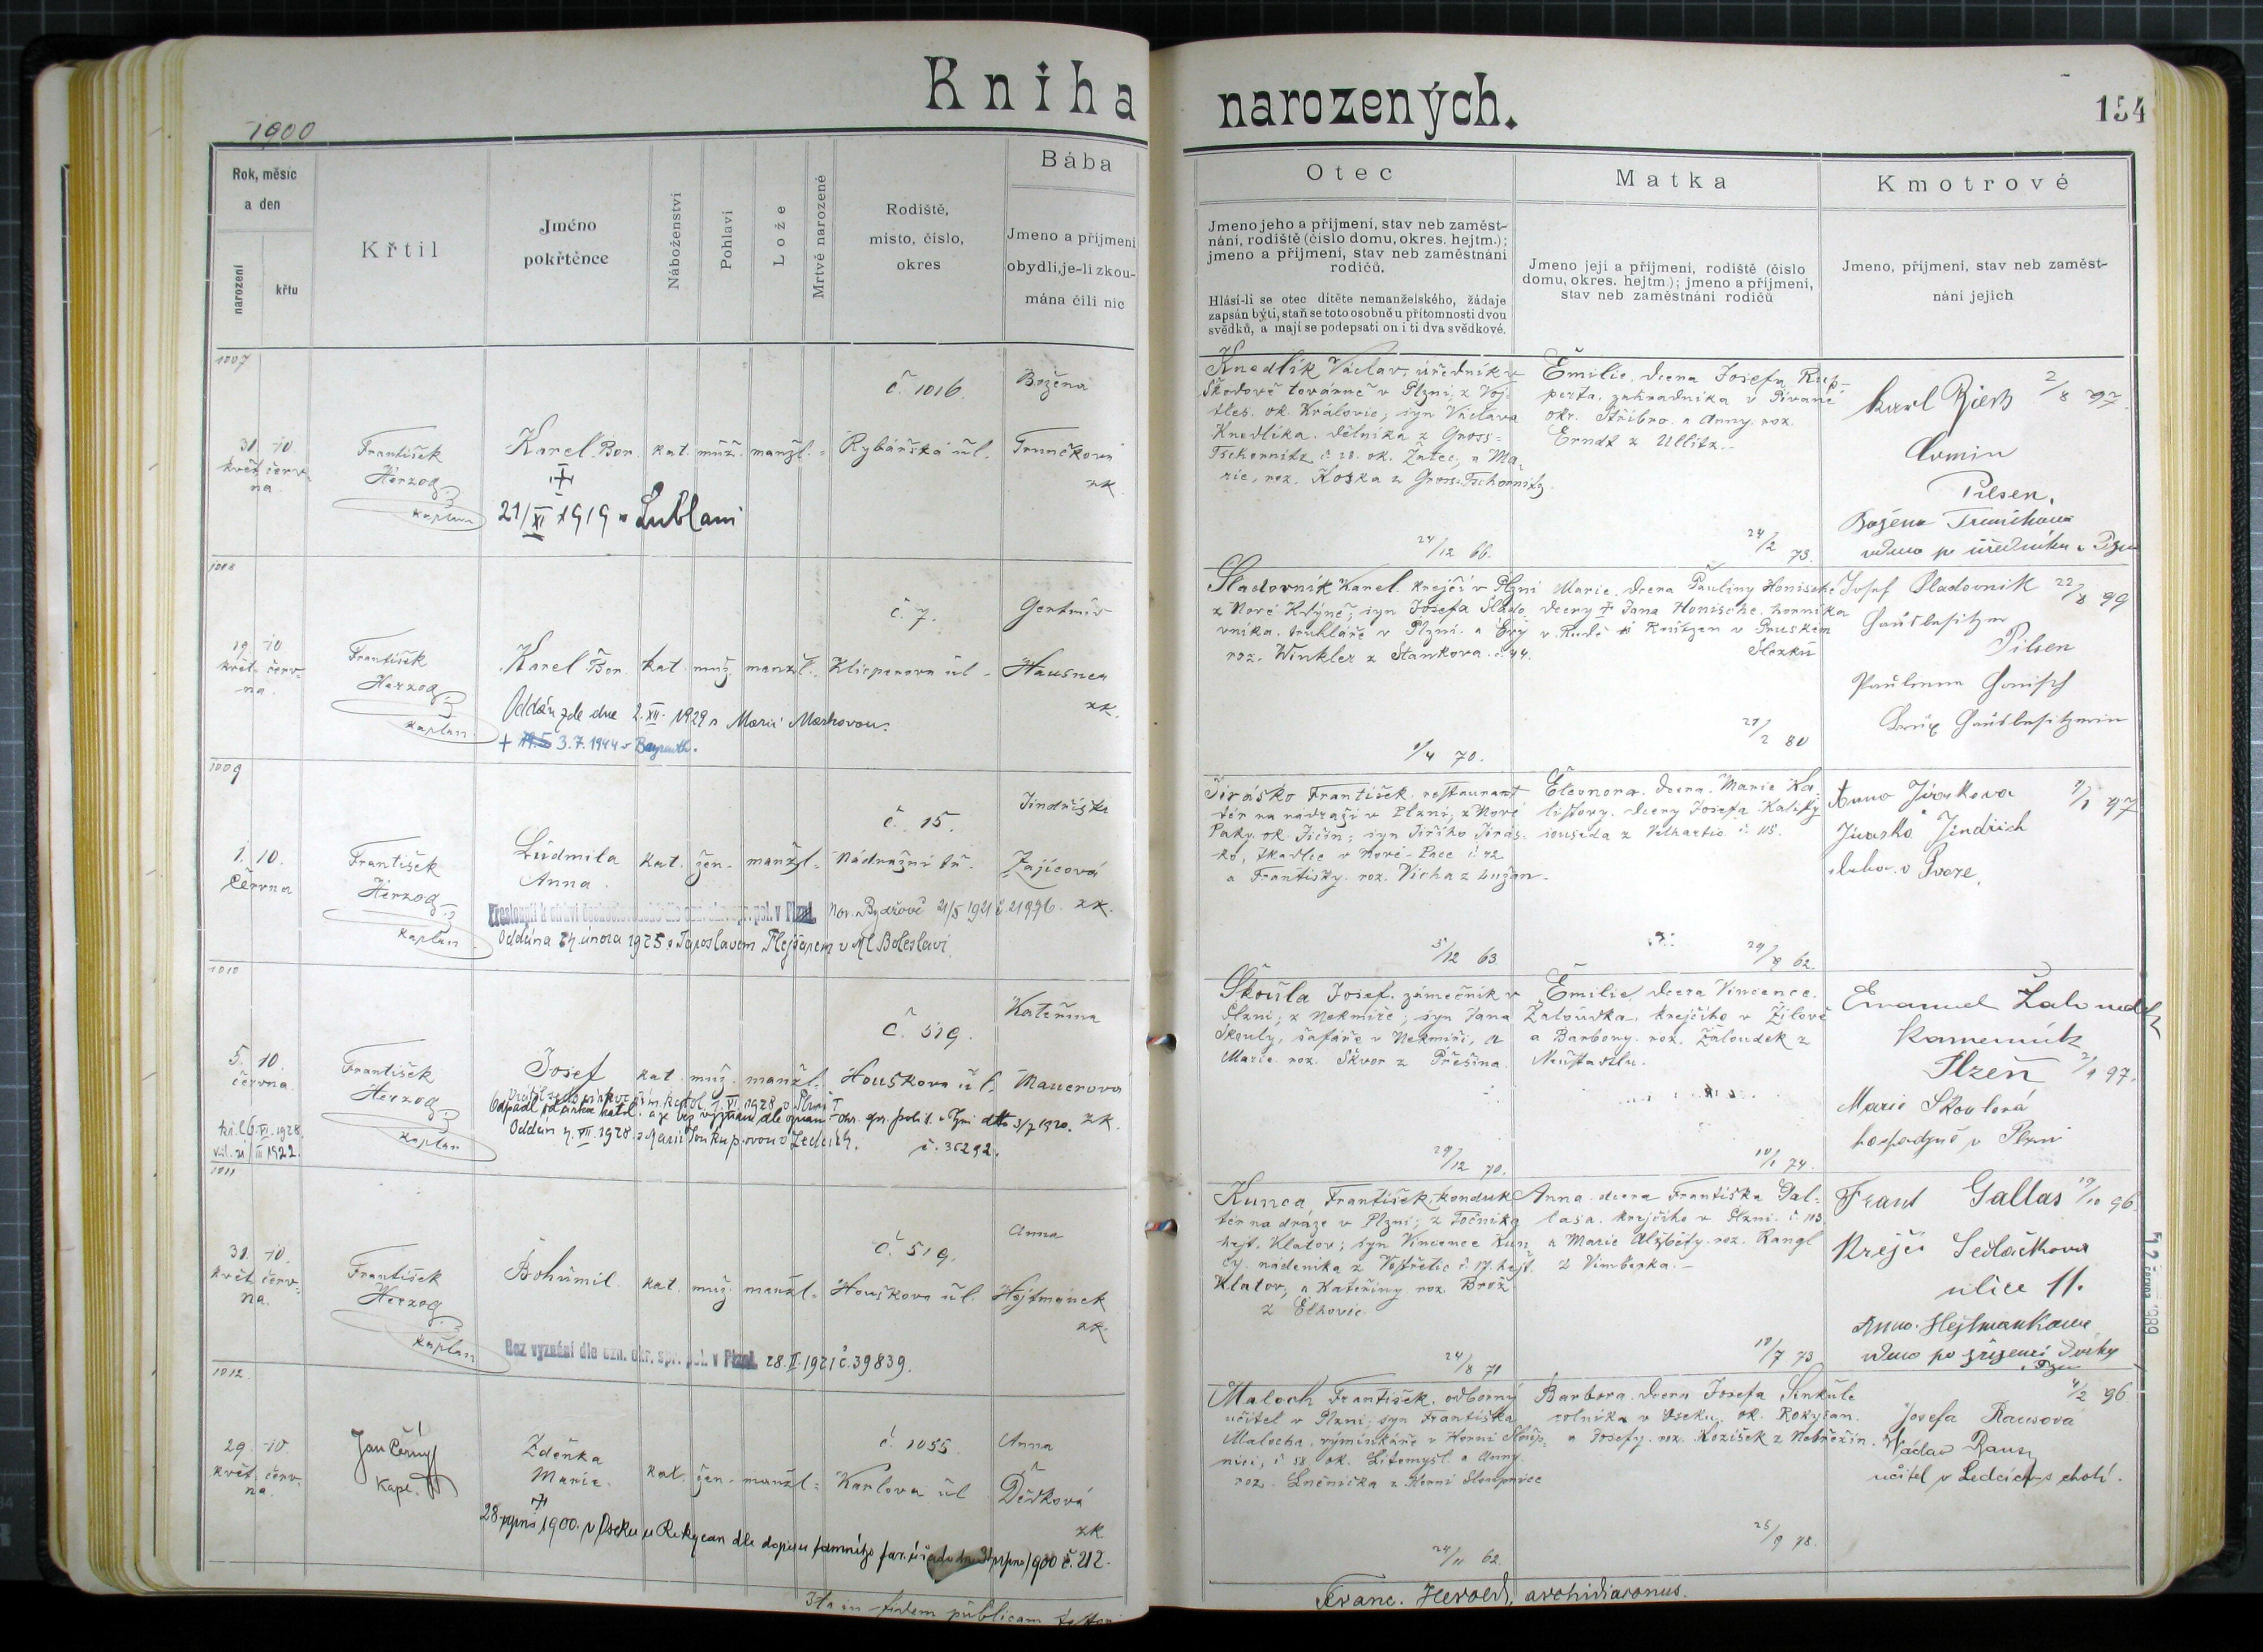 Kniha narozených.
154
1900
Rok, měsíc
a den
narození
křtu
Křtil
Jméno
pokřtěnce
Náboženství
Pohlaví
Lože
Mrtvě narozené
Rodiště,
místo, číslo,
okres
Bába
Jmeno a přijmení
obydlí, je-li zkou-
mána čili nic
Otec
Jmeno jeho a přijmení, stav neb zaměst-
nání, rodiště (číslo domu, okres. hejtm.);
jmeno a přijmení, stav neb zaměstnání
rodičů.
Hlásí-li se otec dítěte nemanželského, žádaje
zapsán býti, staň se toto osobně u přítomnosti dvou
svědků, a mají se podepsati on i ti dva svědkové.
Matka
Jmeno její a přijmení, rodiště (číslo
domu, okres. hejtm.); jmeno a přijmení,
stav neb zaměstnání rodičů
Kmotrové
Jmeno, přijmení, stav neb zaměst-
nání jejich
1007
31. 10.
květ. červ-
na.
František
Herzog
kaplan
Karel Bor.
kat. muž. manžl.
č. 1016.
Rybářská ul.
Božena
Truněčkova
zk.
21/XI 1919 v Lublani
Knedlík Václav, úředník v
Škodově továrně v Plzni; z Voj-
těš. ok. Kralovic; syn Václava
Knedlíka. dělníka z Gross-
Tschernitz č. 28. ok. Žatec, a Ma-
rie, roz. Koska z Gross-Tschernitz
24/12 66.
Emilie, dcera Josefa Rup-
perta, zahradníka v Pivaně
okr. Stříbro. a Anny. roz.
Erndt z Ullitz.
24/2 73.
Karl 2/8 97.
Pilsen.
Božena Truničkova
vdova po úředníku v Plzni
1008
19. 10
květ. červ-
na.
František
Herzog
kaplan
Karel Bor.
kat. muž. manžl.
č. 7.
Klicperova ul.
Gertruda
Hausner
zk.
Oddán zde dne 2. XII. 1929 s Marií Markovou.
+ 3.7.1944 v Bayreuth.
Sladovník Karel. krejčí v Plzni
z Nové Kdyně; syn Josefa Slado-
vníka. truhláře v Plzni. a Evy
roz. Winkler z Stankova. č. 44.
1/4 70.
Marie. dcera Pauliny Honische
dcery † Jana Honische. horníka
v Rudě v Pruském
Slezku
27/2 80
Josef Sladovnik 22/8 99
Hausbesitzer
Pilsen
Paulina Honisch
Hausbesitzerin
1009
1. 10.
června
František
Herzog
kaplan
Ludmila
Anna.
kat. žen. manžl.
č. 15.
Nádražní tř.
Jindřiška
Zajícová
zk.
Přestoupil k církvi československé dle ozn. okr. spr. pol. v Nov. Bydžově 21/5 1921 č. 21976.
Oddána 24. února 1925 s Jaroslavem Flejšarem v Ml. Boleslavi.
Jirásko František. restaurant
tér na nádraží v Plzni; z Nové
Paky. ok. Jičín; syn Jiřího Jirás-
ko, tkadlce v Nové-Pace č. 42
a Františky. roz. Vícha z Lužan.
5/12 63.
Eleonora. dcera. Marie Ka-
listovy. dcery Josefa Kalisty
souseda z Velhartic č. 115.
62.
Anna Jiraskova 97
Jirasko Jindřich
1010
5. 10.
června
František
Herzog
kaplan
Josef
kat. muž. manžl.
č. 519.
Houškova ul.
Kateřina
Mauerova
zk.
Vrátil se do církve řím. katol. 7. VI. 1928 v Plzni
Odpadl od církve katol. a je bez vyznání dle oznam. okr. spr. polit. v Plzni dtto 3/7 1920.
Oddán 7. VII. 1928 s Marií Soukupovou v Ledcích. č. 36292.
Škoula Josef. zámečník v
Plzni; z Nekmíře; syn Jana
Škouly, šafáře v Nekmíři, a
Marie. roz. Škvor z Přešína.
29/12 70.
Emilie, dcera Vincence.
Žaloudka, krejčího v Žilově
a Barbory. roz. Žaloudek z
Neustadtlu.
10/1 74.
Emanuel Žaloudek
Kamenník
Plzeň 97.
Marie Skoulová
hospodyně v Plzni
1011
31. 10.
květ. červ-
na.
František
Herzog
kaplan
Bohumil.
kat. muž. manžl.
č. 519.
Houškova ul.
Anna
Hejtmánek
zk.
Bez vyznání dle ozn. okr. spr. pol. v Plzni 28. II. 1921 č. 39839.
Kunca, František, konduk-
tér na dráze v Plzni; z Točníka
hejt. Klatov; syn Vincence Kun-
cy. nádeníka z Vostřetic č. 17. hejt.
Klatov, a Kateřiny roz. Brož
z Elhovic.
24/8 71
Anna. dcera Františka Gal-
lasa. krejčího v Plzni. č. 113
a Marie Alžběty. roz. Rangl
z Vimberka.
18/7 73
Frant Gallas 19/10 96.
Krejčí Sedláčkova
ulice 11.
Anna Hejtmankova
vdova po zřízenci dráhy
1012
29. 10.
květ. červ-
na.
Jan Černý
kapl.
Zdeňka
Marie.
kat. žen. manžl.
č. 1055.
Karlova ul.
Anna
Dědková
zk.
28. srpna 1900. v Oseku u Rokycan dle dopisu tamního far. úřadu srpna 1900 č. 212.
Maloch František, odborný
učitel v Plzni; syn Františka
Malocha. výminkáře v Horní Sloup-
nici, č. 58 ok. Litomyšl. a Anny.
roz. Lněnička z Horní Sloupnice
24/11 62.
Barbora. dcera Josefa Sinkule
rolníka v Oseku. ok. Rokycan.
a Josefy. roz. Kozíšek z Nebřezin.
25/9 78.
4/2 96
Josefa Rausová
Václav Raus
učitel v Ledcích s chotí.
Ita in fidem publicam
Franc. Herold, archidiaconus.